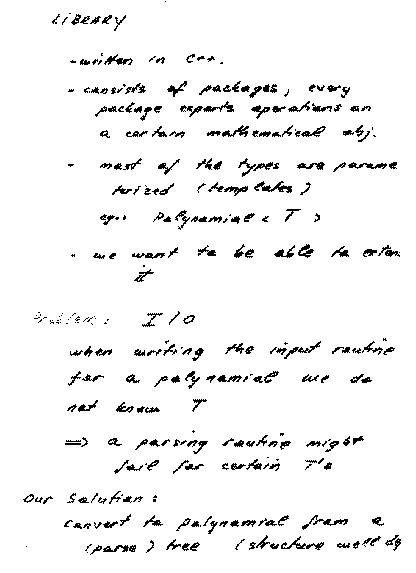 LIBRARY
- written in C++.
- consists of packages, every
package exports operations on
a certain mathematical obj.
- most of the types are parame
terized (templates)
eg.: Polynomial < T >
- we want to be able to exten
it
Problem: I/O
when writing the input routine
for a polynomial we do
not know T
=> a parsing routine might
fail for certain T's
Our Solution:
convert to polynomial from a
(parse) tree (structure well